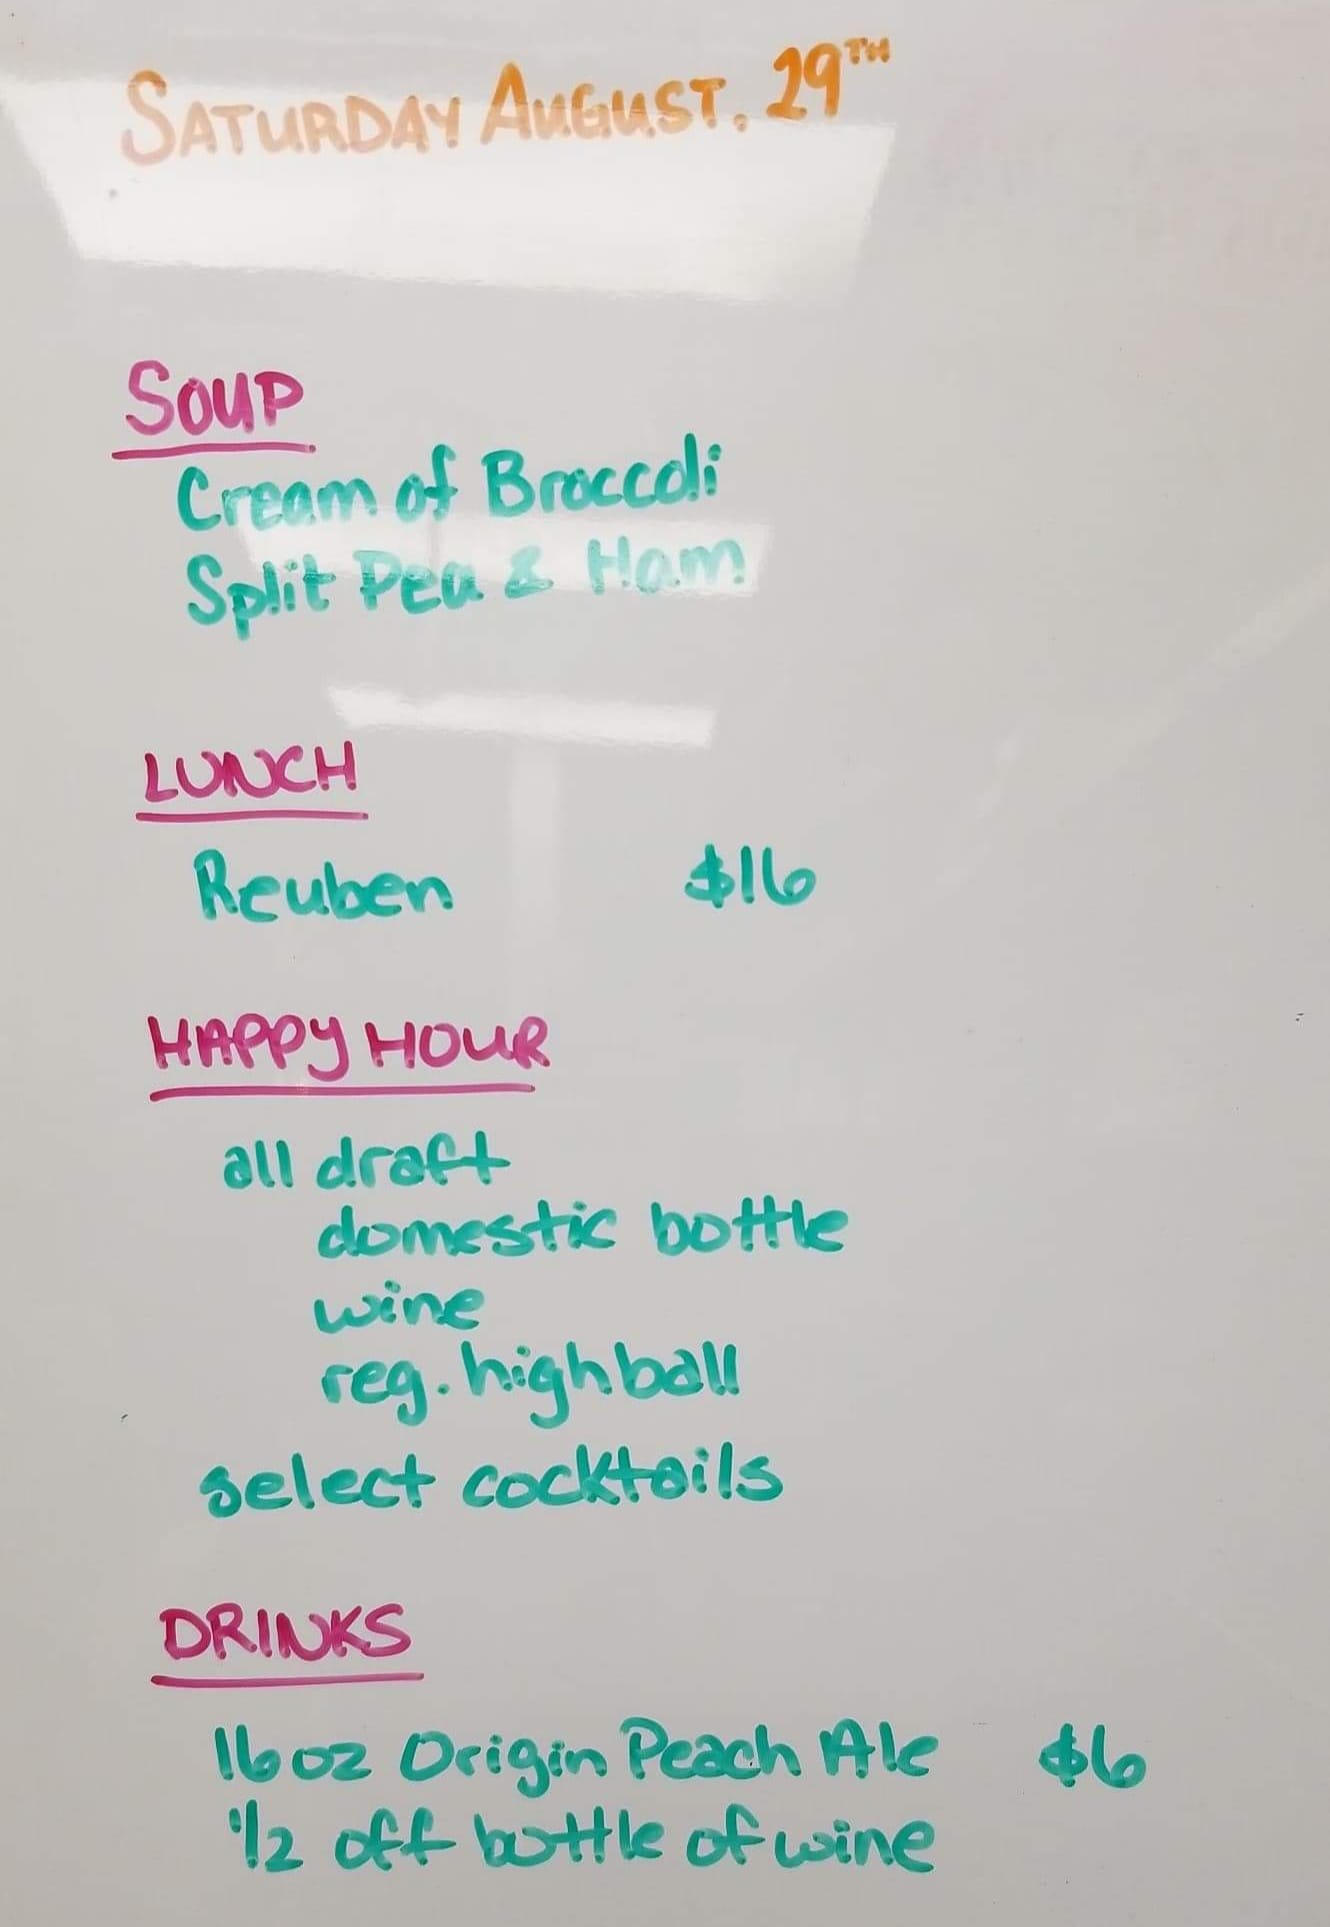 SATURDAY AUGUST. 29TH
SOUP
Cream of Broccoli
Split Pea & Ham
LUNCH
Reuben $16
HAPPY HOUR
all draft
domestic bottle
wine
reg. highball
select cocktails
DRINKS
16oz Origin Peach Ale $6
1/2 off bottle of wine